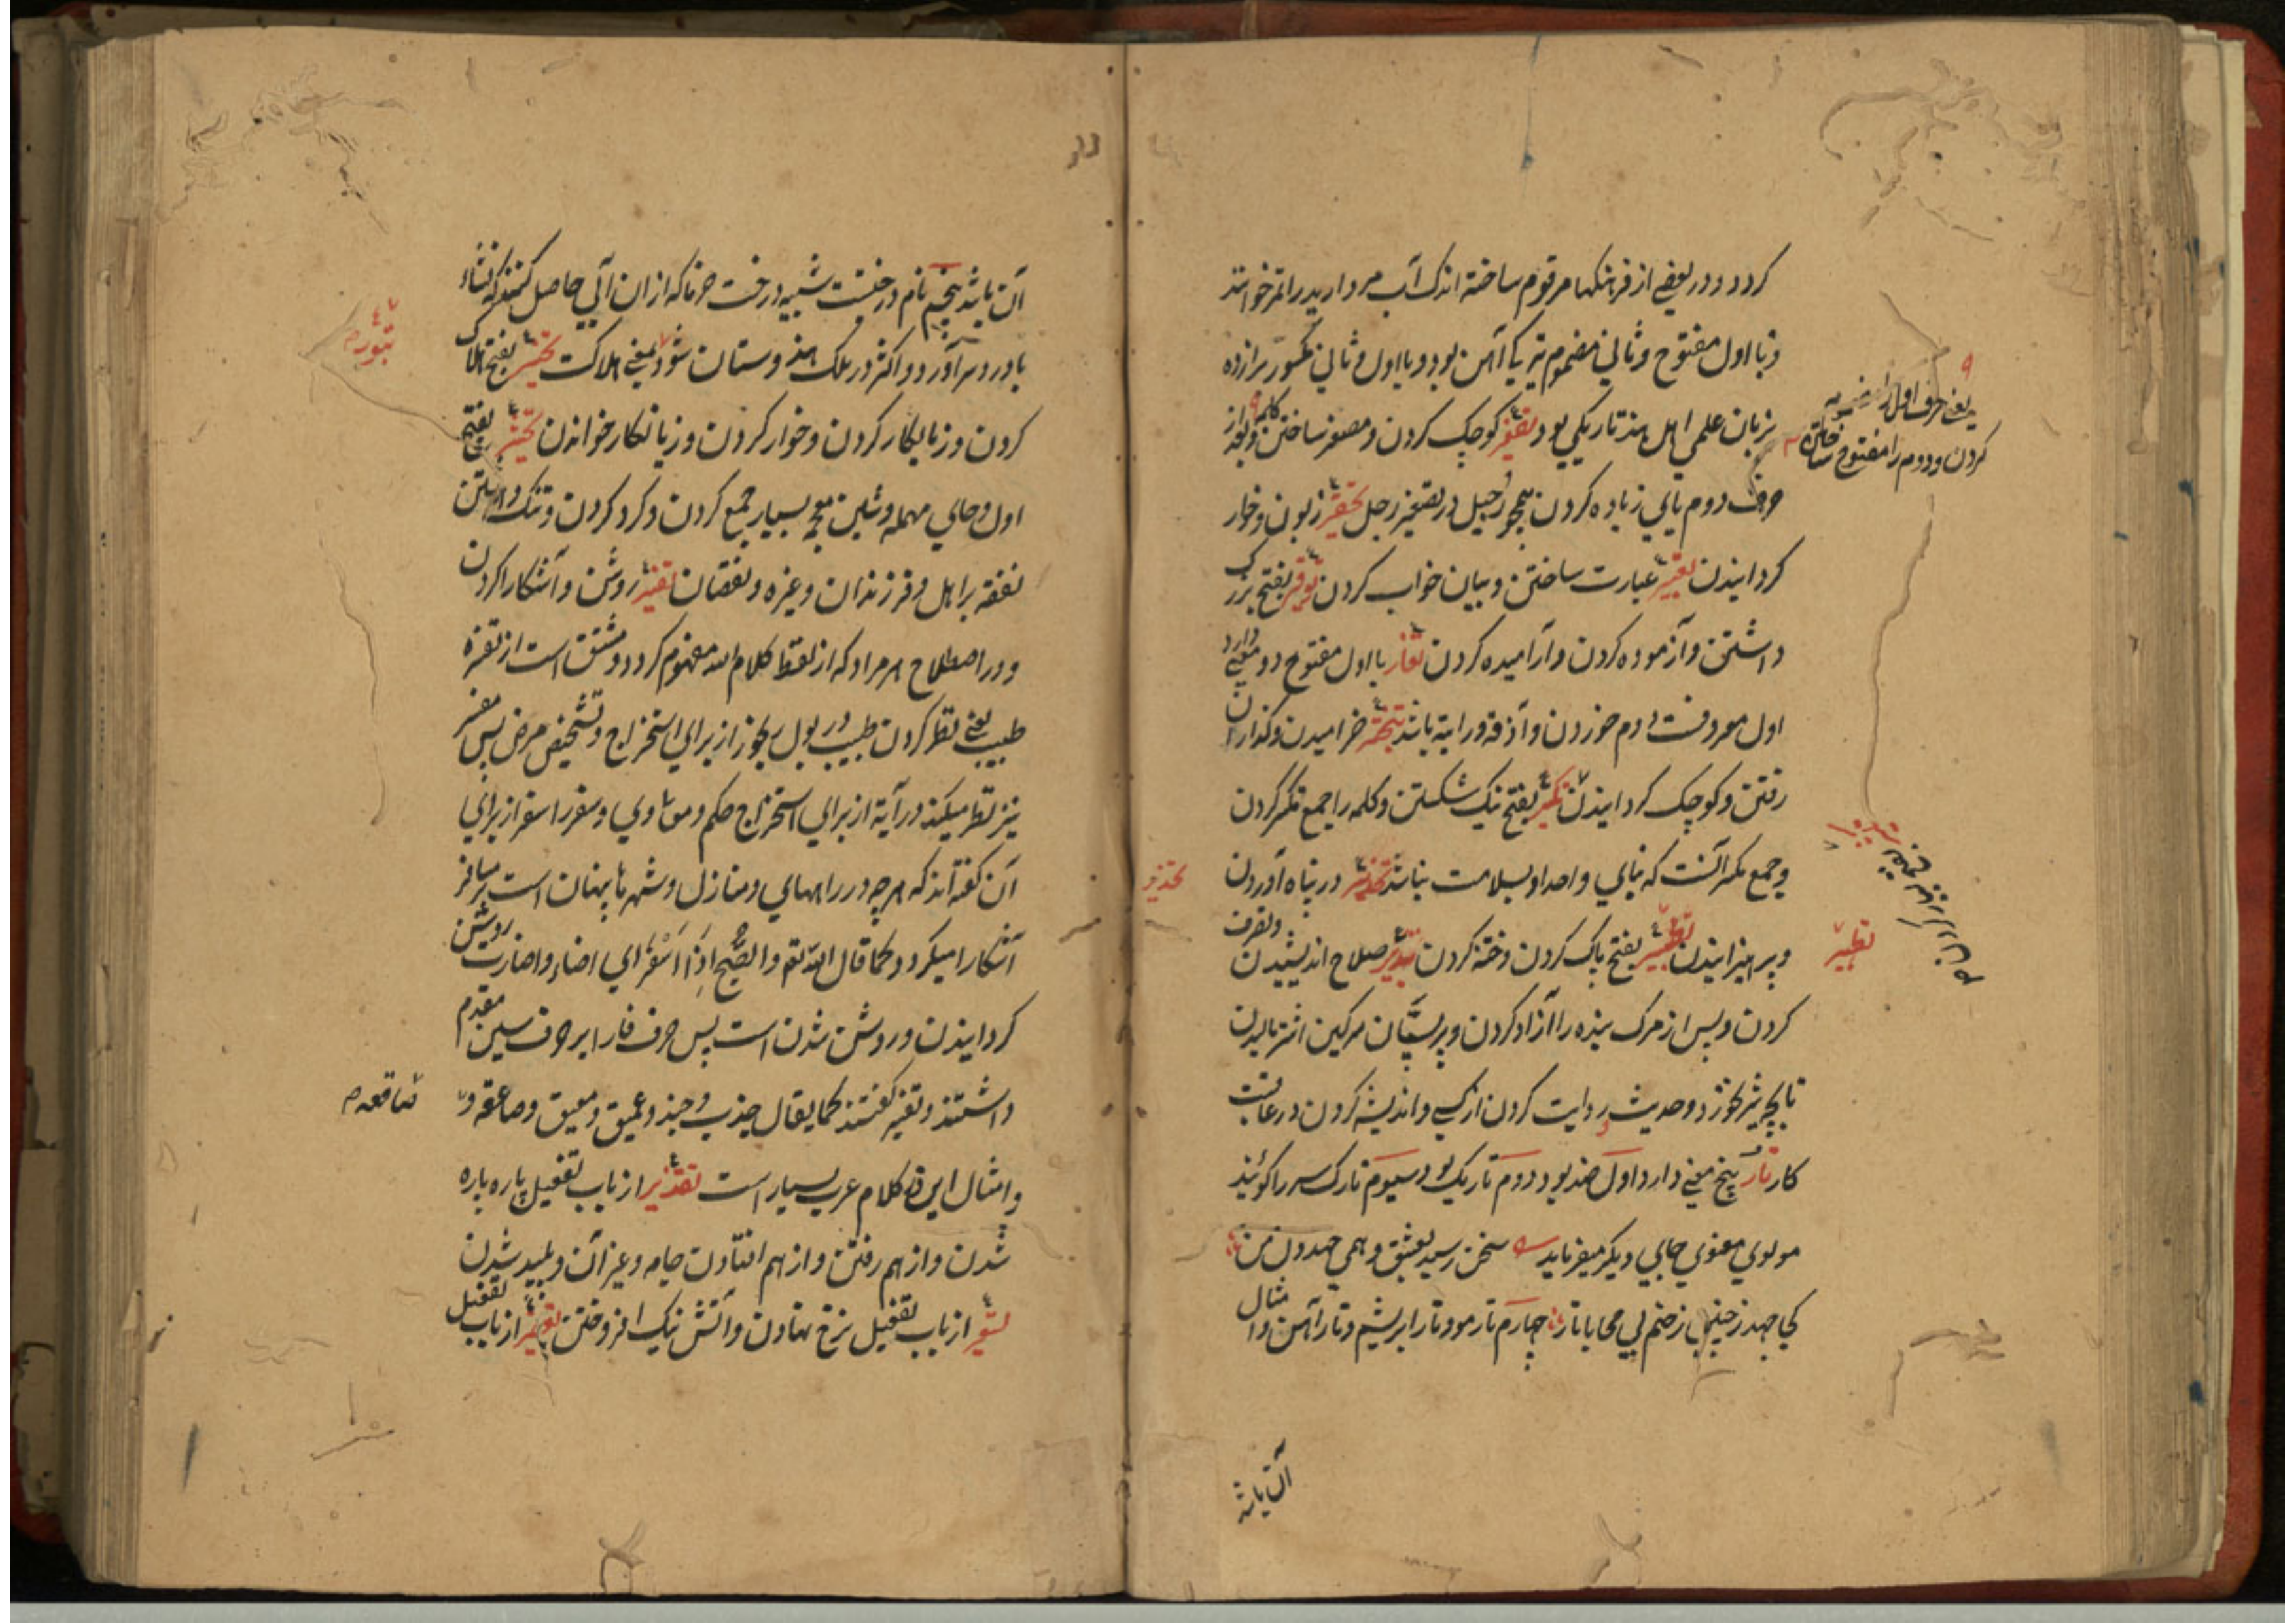 کردد و در بعضے از فرهنکها مرقوم ساخته اندک آب مروارید را تمر خوانند
و با اول مفتوح و ثانی مضموم تیر یکی آهن بود و با اول و ثانی مکسور
بزبان علمی اهل هند تاریکی بود تصغیر کوچک کردن و مصغر ساختن کلمه
حرف دوم یای زیاده کردن همچو رجیل در تصغیر رجل تحقیر زبون و خوار
کردانیدن تعبیر عبارت ساختن و بیان خواب کردن توقیر بفتح بزرک
داشتن و آزموده کردن و آرامیده کردن تغار با اول مفتوح دو معنے دارد
اول معروفست دوم خوردن و آذقه و راتبه باشد تبختر خرامیدن
رفتن و کوچک کردانیدن تکسیر بفتح نیک شکستن و کلمه را جمع مکسر کردن
و جمع مکسر آنست که بنای واحد او بسلامت نباشد تحذیر در پناه آوردن
و پرهیزانیدن تطهیر بفتح پاک کردن و ختنه کردن تدبیر صلاح اندیشیدن و تصرف
کردن و پس از مرک بنده را آزاد کردن و بر پستان سرکین اشتر مالیدن
تا بچه شیر نخورد و حدیث روایت کردن از کسے و اندیشه کردن در عاقبت
کار تار پنج معنے دارد اول ضد پود دوم تاریک بود سیوم تارک سر را کویند
مولوی معنوی جایی دیکر میفرماید سخن رسید بعشق و همی جهد دل من
کجا جهد ز چنین زخم بی محابا تار چهارم تار مو و تار ابریشم و تار آهن و امثال
آن باشد
یعنے حرف اول را
کردن و دوم را مفتوح ساختن
تطهیر
تحذیر
آن باشد پنجم نام درختیست شبیه درخت خرما که از آن آبی حاصل کنند که نشاء
بادرد سر آورد و اکثر در ملک هندوستان شود بمعنے هلاکت تخسیر بفتح هلاک
کردن و زیانکار کردن و خوار کردن و زیانکار خواندن تحشیر بفتح
اول و حای مهمله و شین معجمه بسیار جمع کردن و کرد کردن و تنک داشتن
نفقه بر اهل و فرزندان و غیره و نقصان تفسیر روشن و آشکارا کردن
و در اصطلاح هر مراد که از لفظ کلام الله مفهوم کردد و مشتق است از تفسره
طبیب یعنے نظر کردن طبیب در بول رنجور از برای استخراج و تشخیص مرض پس مفسر
نیز نظر میکند در آیة از برای استخراج حکم و معنا وی و سفر را سفر از برای
آن کفته اند که هرچه در راههای و منازل و شهرها پنهان است بر مسافر
آشکارا میکردد و کما قال الله تع و الصُّبْحِ اِذَا اَسْفَرَ ای اضاء و اضارت روشن
کردانیدن و روشن شدن است پس حرف فا را بر حرف سین مقدم
داشتند و تفسیر کفتند کما یقال جذب و جبذ و عمیق و معیق و صاعقه و
و امثال این در کلام عرب بسیار است تقذیر از باب تفعیل پاره پاره
شدن و از هم رفتن و از هم افتادن جامه و غیر آن و پلید شدن
تسعیر از باب تفعیل نرخ نهادن و آتش نیک افروختن از باب تفعیل
صاقعه